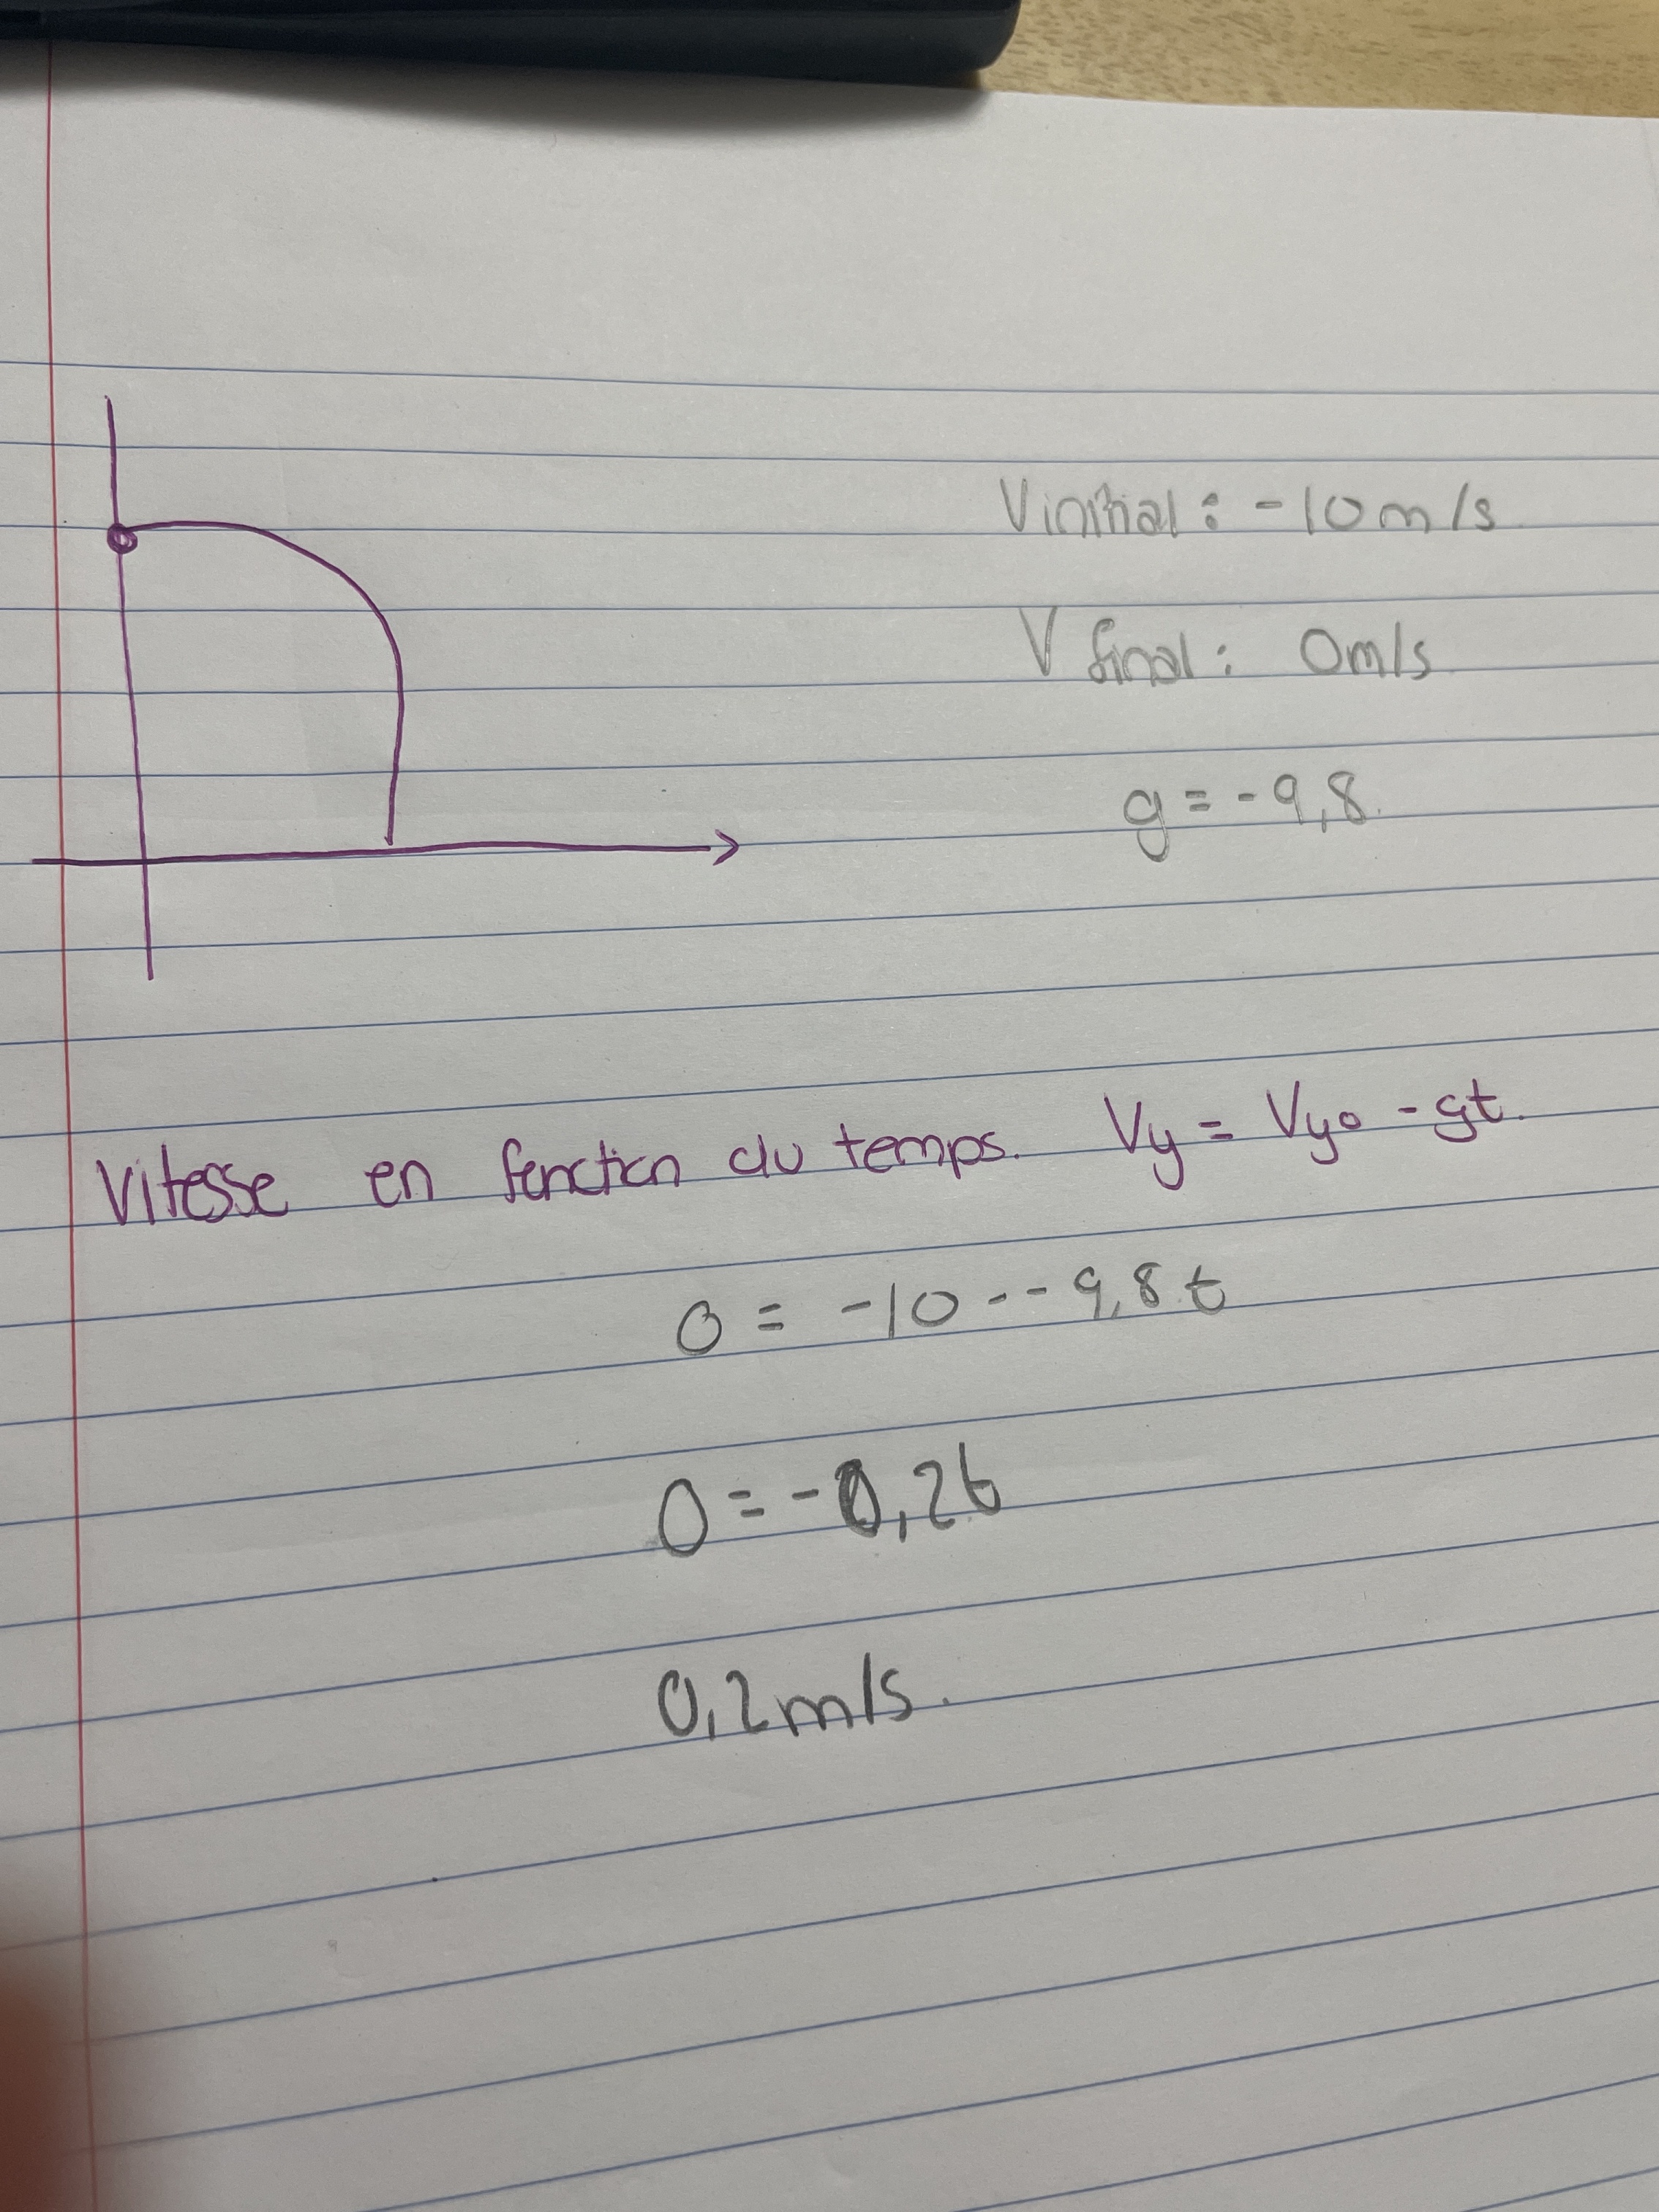 Vinitial : -10m/s
V final : 0m/s
g = -9,8.
Vitesse en fonction du temps. Vy = Vyo - gt.
0 = -10 - - 9,8 t
0 = -0,2t
0,2m/s.